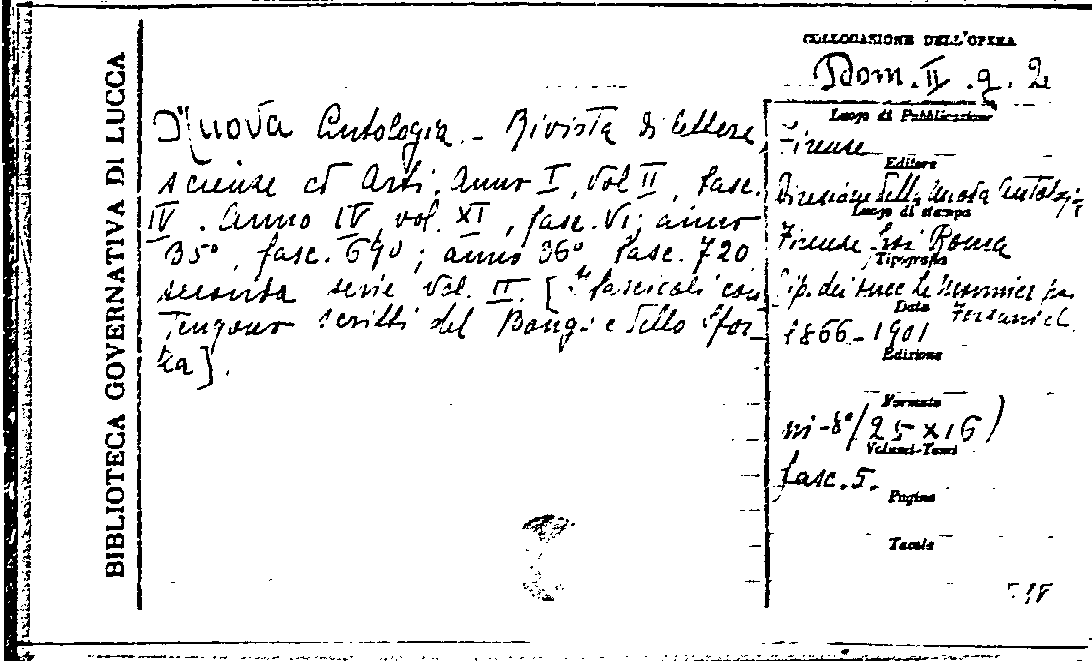 BIBLIOTECA GOVERNATIVA DI LUCCA
COLLOCAZIONE DELL'OPERA
Dom. II. g. 2
Nuova Antologia - Rivista di lettere,
scienze ed Arti. Anno I, vol II, fasc.
IV. Anno IV, vol. XI, fasc. VI; anno
35°, fasc. 690; anno 36° fasc. 720
seconda serie vol. II. [I fascicoli con
tengono scritti del Bongi e dello Sfor
za].
Luogo di Pubblicazione
Firenze
Editore
Direzione della Nuova Antologia
Luogo di stampa
Firenze Roma
Tipografia
Tip. dei succ. Le Monnier
Data
1866-1901
Edizione
Formato
in-8° (25 x 16)
Volumi-Tomi
fasc. 5.
Pagine
Tavole